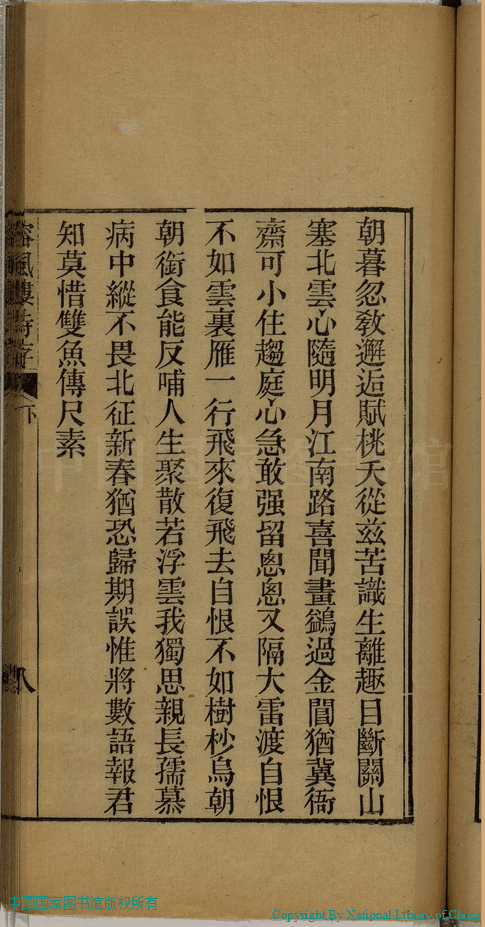 朝暮忽敎邂逅賦桃夭從茲苦識生離趣目斷關山
塞北雲心隨明月江南路喜聞畫鷁過金閶猶冀衙
齋可小住趨庭心急敢强留悤悤又隔大雷渡自恨
不如雲裏雁一行飛來復飛去自恨不如樹杪烏朝
朝銜食能反哺人生聚散若浮雲我獨思親長孺慕
病中縱不畏北征新春猶恐歸期誤惟將數語報君
知莫惜雙魚傳尺素
下
八
中国国家图书馆版权所有
Copyright By National Library of China